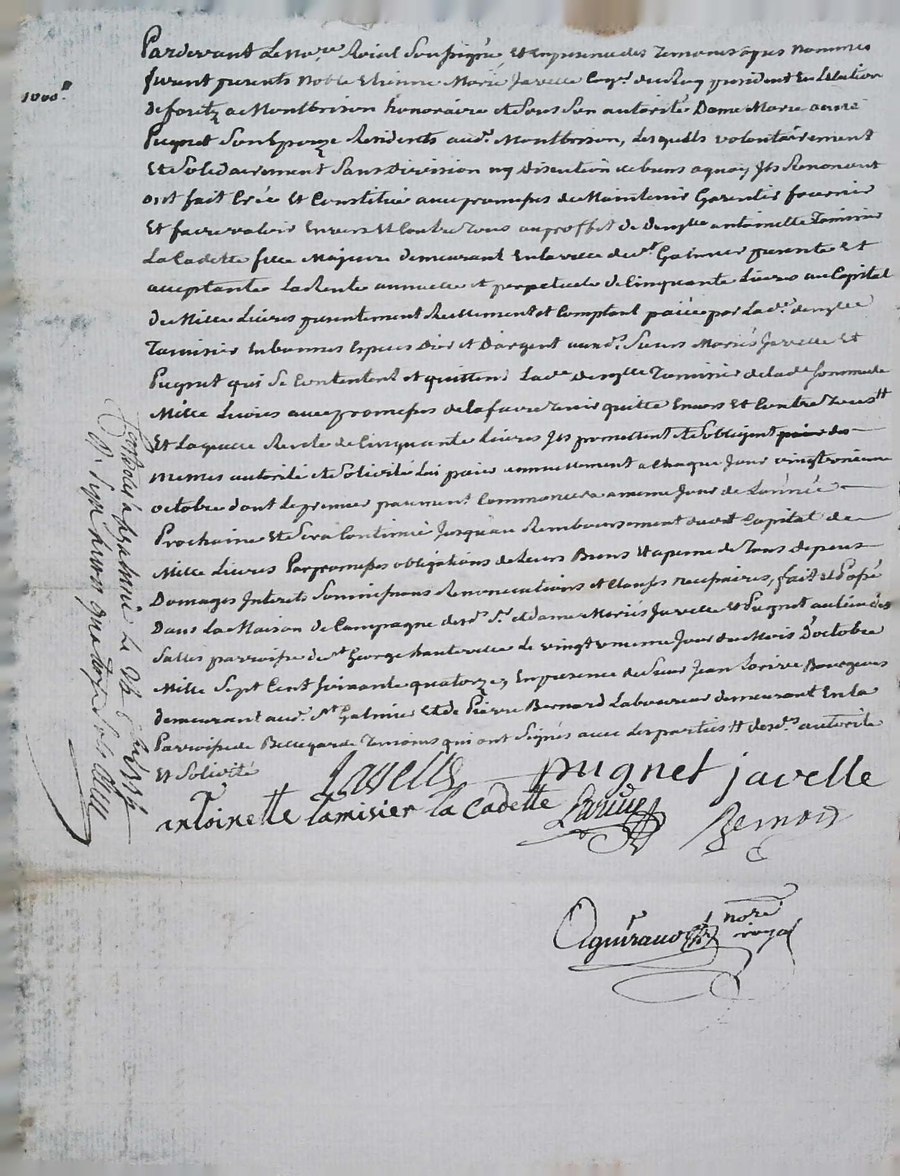 1000ᵗᵗ
Pardevant Le nore. Roial Soussigné, Et en presence des Temoins apres nommes
furent presents Noble Etienne Marie Javelle Conr. du Roy president En Lelection
de foretz a Montbrison honoraire et de Sous Son autorité Dame Marie anne
Pugnet Son Epouze Residents aud. Montbrison, Lesquels volontairement
Et Solidairement Sans Division ny Discution de biens aquoy Jls Renoncent
ont fait Créé Et Constitué avec promesses de Maintenir Garentir fournir
Et faire valoir Envers Et Contre Tous au proffit de denglle antoinette Tamisier
La Cadette fille Majeure demeurant En la ville de st. Galmier presente et
acceptante La Rente annuelle et perpetuelle de Cinquante Livres au Capital
de Mille Livres presentement Reellement et Comptant paiée par La de. denglle
Tamisier En bonnes Especes D'or et D'argent auxd. Sieurs Mariés Javelle Et
Pugnet qui Se Contentent et quittent Lade denglle Tamisier de lade Somme de
Mille Livres avec promesses de la faire Tenir quitte Envers Et Contre Tous tt
Et Laquelle Rente de Cinquante Livres Jls promettent et S'obligent
memes autorité et Solidité Lui paier annuellement a Chaque Jour vingt unieme
octobre dont Le premier paiement Commencera a meme Jour de L'année
Prochaine Et Sera Continué Jusqu'au Remboursement dudit Capital de
Mille Livres Par promesses obligations de Leurs Biens Et a peine de Tous depens
Domages Interets Soumissions Renonciations et Clauses necessaires, fait et Passé
Dans La Maison de Campagne desd. Sr. et dame Mariés Javelle Et Pugnet au lieu des
Salles parroisse de st George hauteville Le vingt unieme Jour du Mois D'octobre
Mille Sept Cent Soixante quatorze, En presence du Sieur Jean Larive Bourgeois
demeurant aud. st Galmier Et de Pierre Bernard Laboureur demeurant En la
Parroisse de Bellegarde Temoins qui ont Signés avec Les parties tt desds. autorité
Et Solidité
Javelle pugnet javelle
antoinette tamisier la cadette Larive Bernard
Aguiraud nore royal